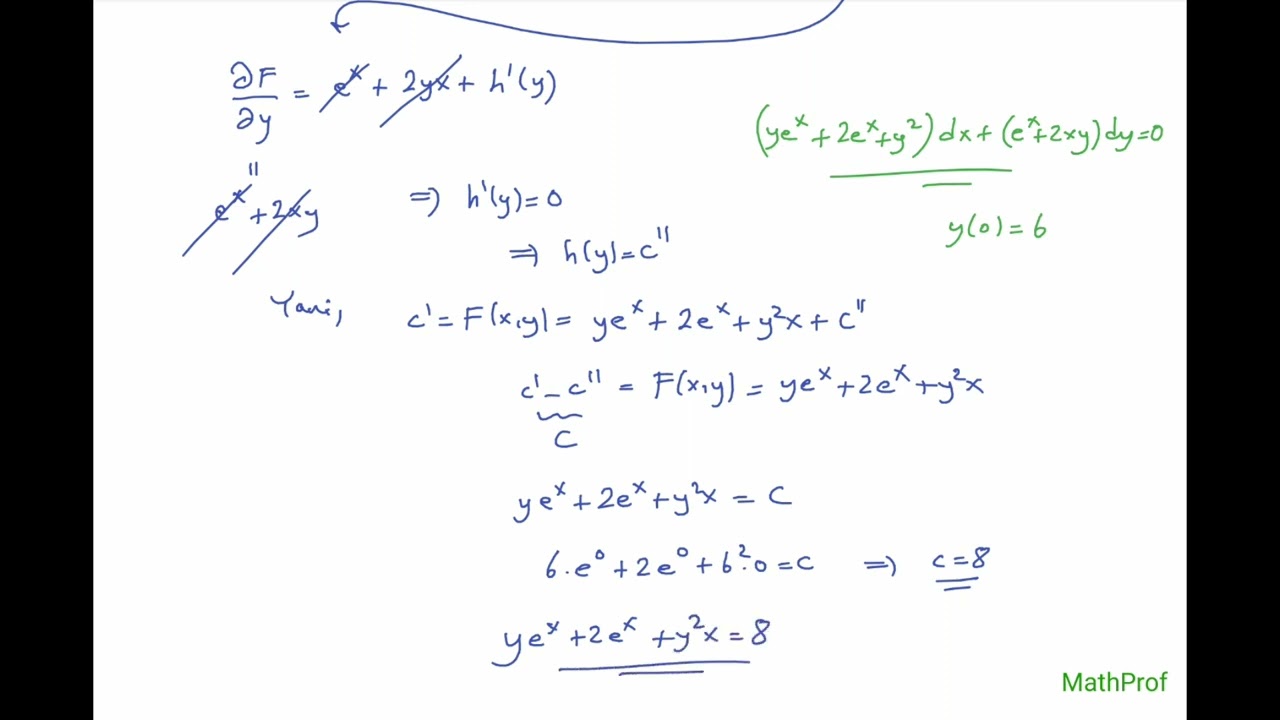 ∂F/∂y = eˣ + 2yx + h'(y)
(yeˣ + 2eˣ + y²) dx + (eˣ + 2xy) dy = 0
"
eˣ + 2xy ⇒ h'(y) = 0
y(0) = 6
⇒ h(y) = c''
Yani, c' = F(x,y) = yeˣ + 2eˣ + y²x + c''
c' - c'' = F(x,y) = yeˣ + 2eˣ + y²x
C
yeˣ + 2eˣ + y²x = C
6.e⁰ + 2e⁰ + 6².0 = C ⇒ c = 8
yeˣ + 2eˣ + y²x = 8
MathProf